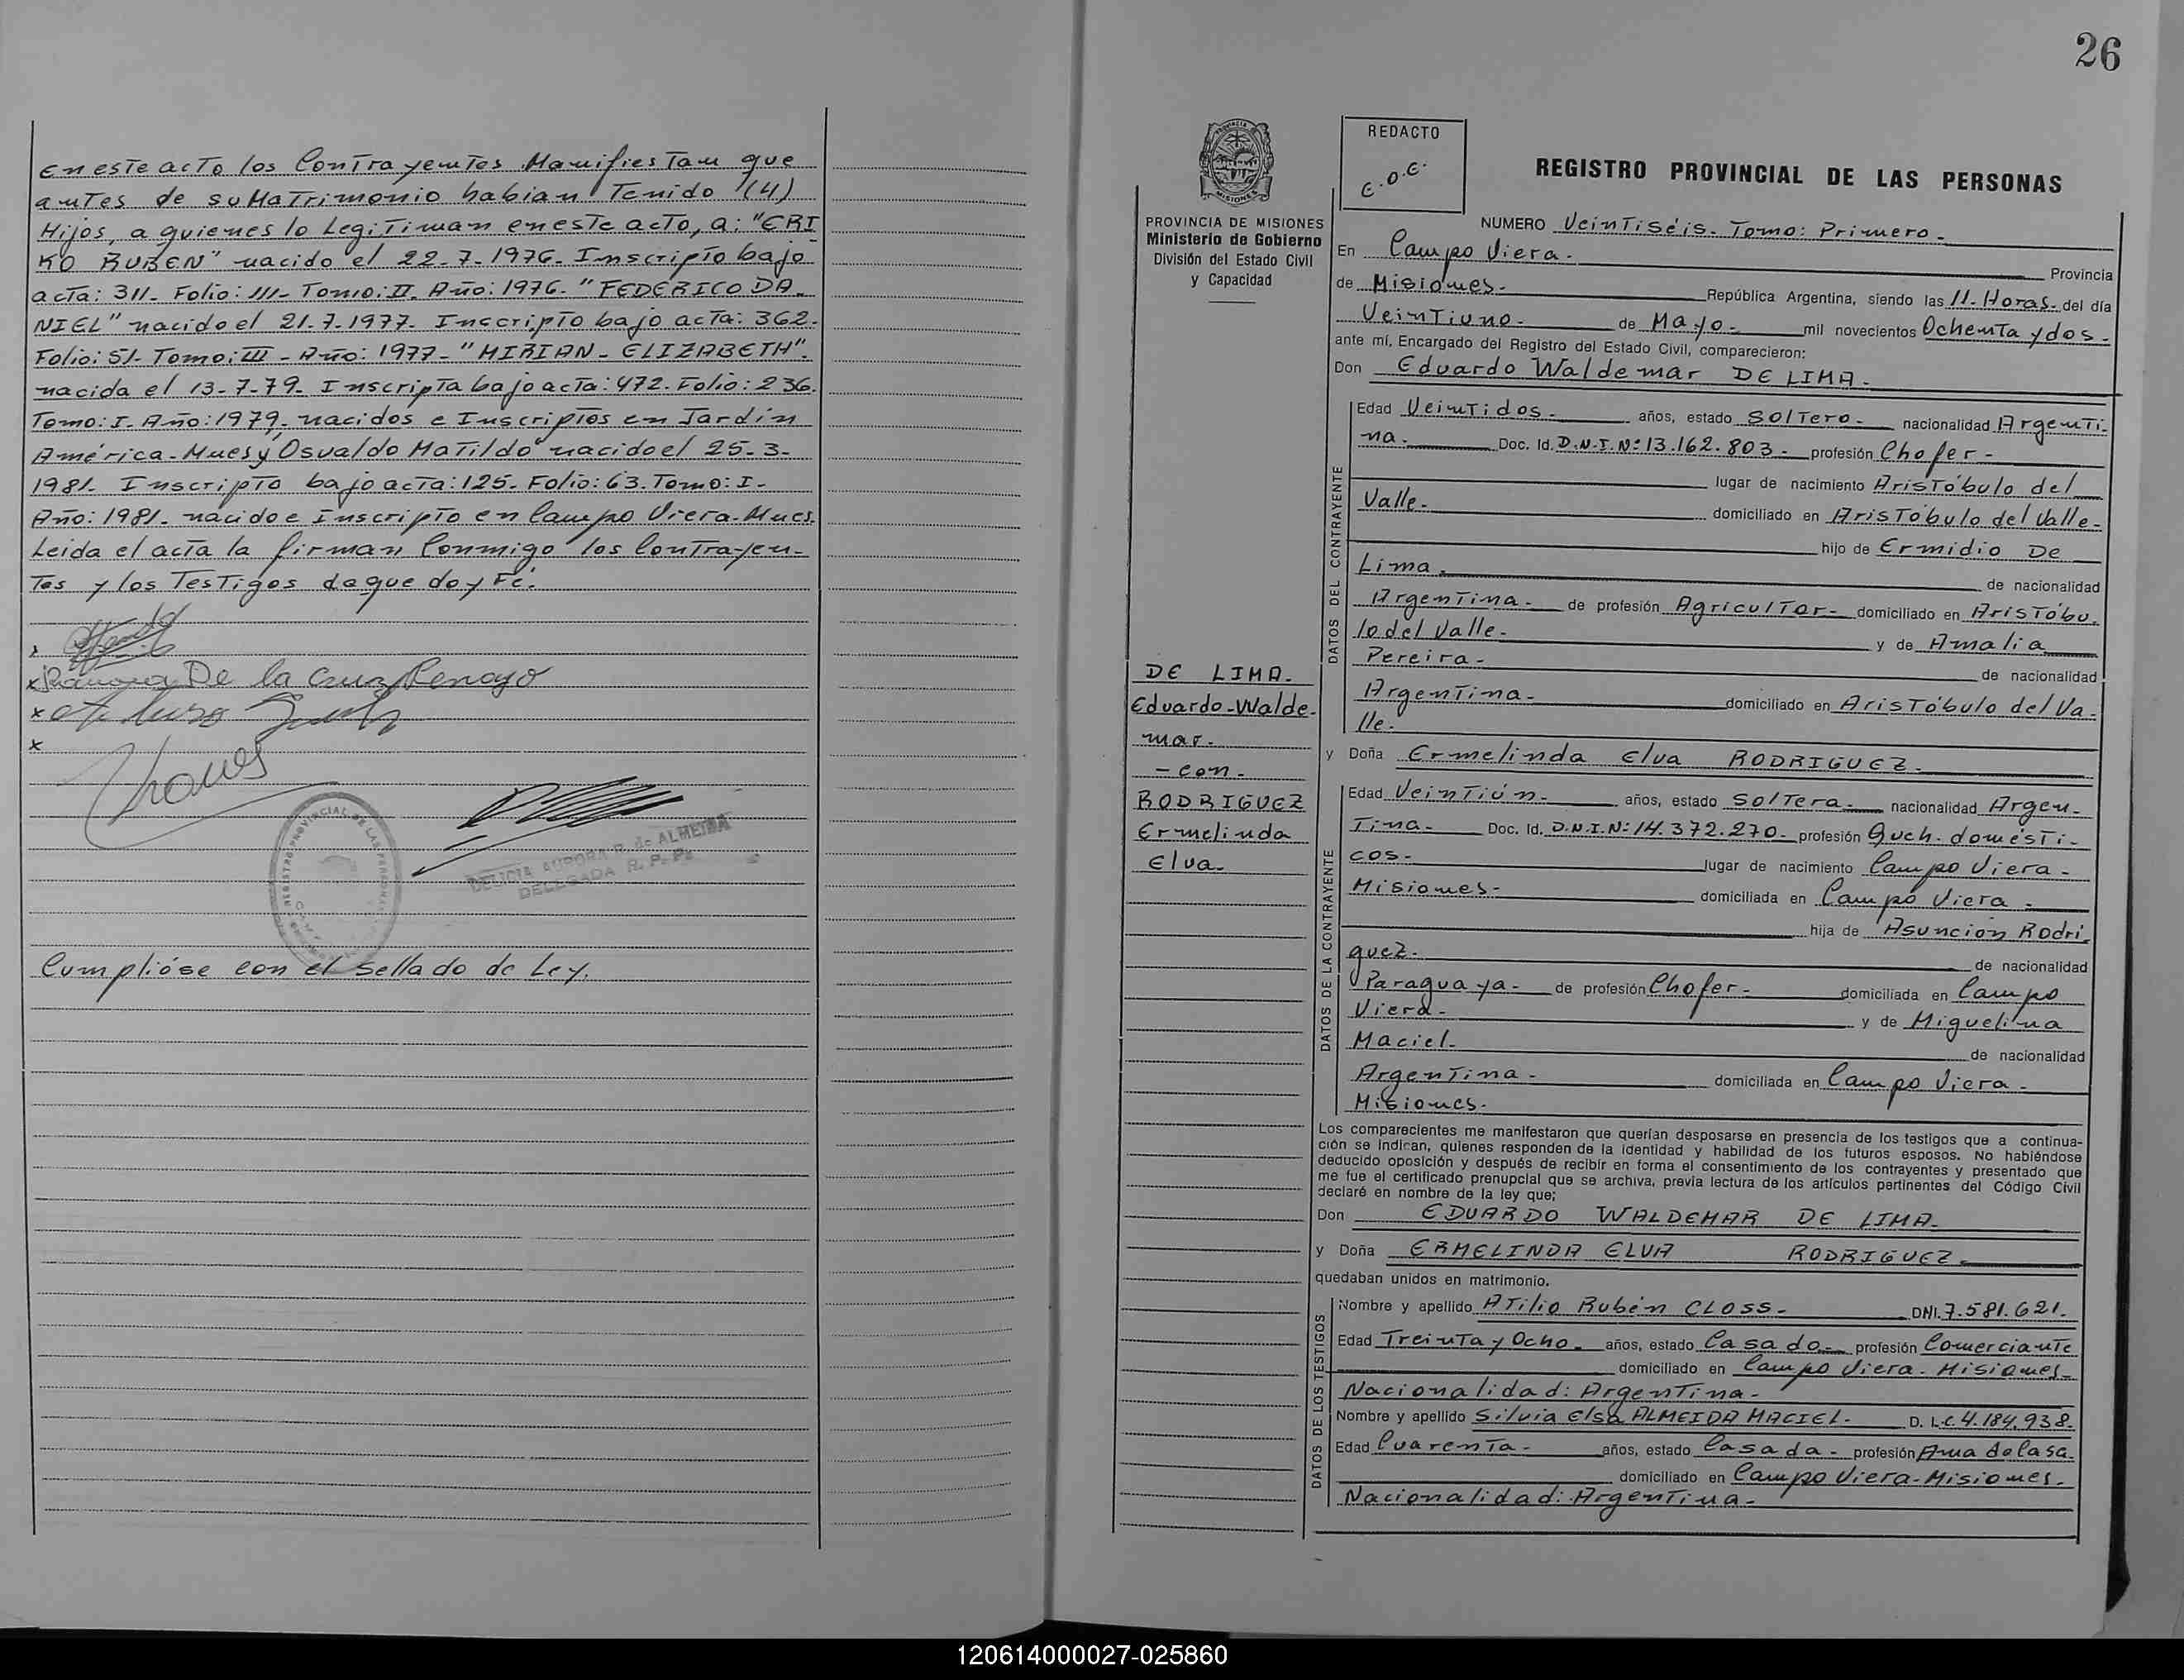 En este acto los Contrayentes Manifiestan que
antes de su Matrimonio habian Tenido (4)
Hijos, a quienes lo Legitiman en este acto, a: "ERI
KO RUBEN" nacido el 22-7-1976. Inscripto bajo
acta: 311- Folio: 111- Tomo: II. Año: 1976. "FEDERICO DA
NIEL" nacido el 21-7-1977. Inscripto bajo acta: 362.
Folio: 51- Tomo: III - Año: 1977 - "MIRIAN - ELIZABETH".
nacida el 13-7-79. Inscripta bajo acta: 472. Folio: 236.
Tomo: I. Año: 1979, nacidos e Inscriptos en Jardin
América - Mnes y "Osvaldo Matildo" nacido el 25-3-
1981. Inscripto bajo acta: 125. Folio: 63. Tomo: I -
Año: 1981. nacido e inscripto en Campo Viera. Mnes.
Leida el acta la firman Conmigo los Contrayen-
tes y los Testigos de que doy Fé.
x
x Ramona De la Cruz
x
x
REGISTRO PROVINCIAL DE LAS PERSONAS
DELICIA AURORA R. de ALMEIDA
DELEGADA R. P. P.
Cumplióse con el Sellado de Ley.
26
PROVINCIA DE MISIONES
Ministerio de Gobierno
División del Estado Civil
y Capacidad
REDACTO
E.O.E.
REGISTRO PROVINCIAL DE LAS PERSONAS
NUMERO Veintiséis. Tomo: Primero -
En Campo Viera - Provincia
de Misiones - República Argentina, siendo las 11. Horas - del día
Veintiuno - de Mayo - mil novecientos Ochenta y dos -
ante mí, Encargado del Registro del Estado Civil, comparecieron:
Don Eduardo Waldemar DE LIMA -
DATOS DEL CONTRAYENTE
Edad Veintidos - años, estado Soltero - nacionalidad Argenti-
na - Doc. Id. D.N.I. Nº 13.162.803 - profesión Chofer -
lugar de nacimiento Aristóbulo del
Valle - domiciliado en Aristóbulo del Valle -
hijo de Ermidio De
Lima - de nacionalidad
Argentina - de profesión Agricultor - domiciliado en Aristóbu-
lo del Valle - y de Amalia
Pereira - de nacionalidad
Argentina - domiciliado en Aristóbulo del Va-
lle -
y Doña Ermelinda Elva RODRIGUEZ -
DE LIMA -
Eduardo - Walde-
mar -
- con -
RODRIGUEZ
Ermelinda
Elva -
DATOS DE LA CONTRAYENTE
Edad Veintiún - años, estado Soltera - nacionalidad Argen-
tina - Doc. Id. D.N.I. Nº 14.372.270 - profesión Queh. domésti-
cos - lugar de nacimiento Campo Viera -
Misiones - domiciliada en Campo Viera -
hija de Asuncion Rodri
guez - de nacionalidad
Paraguaya - de profesión Chofer - domiciliada en Campo
Viera - y de Miguelina
Maciel - de nacionalidad
Argentina - domiciliada en Campo Viera -
Misiones -
Los comparecientes me manifestaron que querían desposarse en presencia de los testigos que a continua-
ción se indican, quienes responden de la identidad y habilidad de los futuros esposos. No habiéndose
deducido oposición y después de recibir en forma el consentimiento de los contrayentes y presentado que
me fue el certificado prenupcial que se archiva, previa lectura de los artículos pertinentes del Código Civil
declaré en nombre de la ley que;
Don EDUARDO WALDEMAR DE LIMA -
y Doña ERMELINDA ELVA RODRIGUEZ -
quedaban unidos en matrimonio.
DATOS DE LOS TESTIGOS
Nombre y apellido Atilio Rubén CLOSS - DNI. 7.581.621.
Edad Treinta y Ocho - años, estado Casado - profesión Comerciante
domiciliado en Campo Viera - Misiones -
Nacionalidad: Argentina -
Nombre y apellido Silvia Elsa ALMEIDA MACIEL - D. L.C. 4.184.938.
Edad Cuarenta - años, estado Casada - profesión Ama de Casa.
domiciliado en Campo Viera - Misiones -
Nacionalidad: Argentina -
120614000027-025860